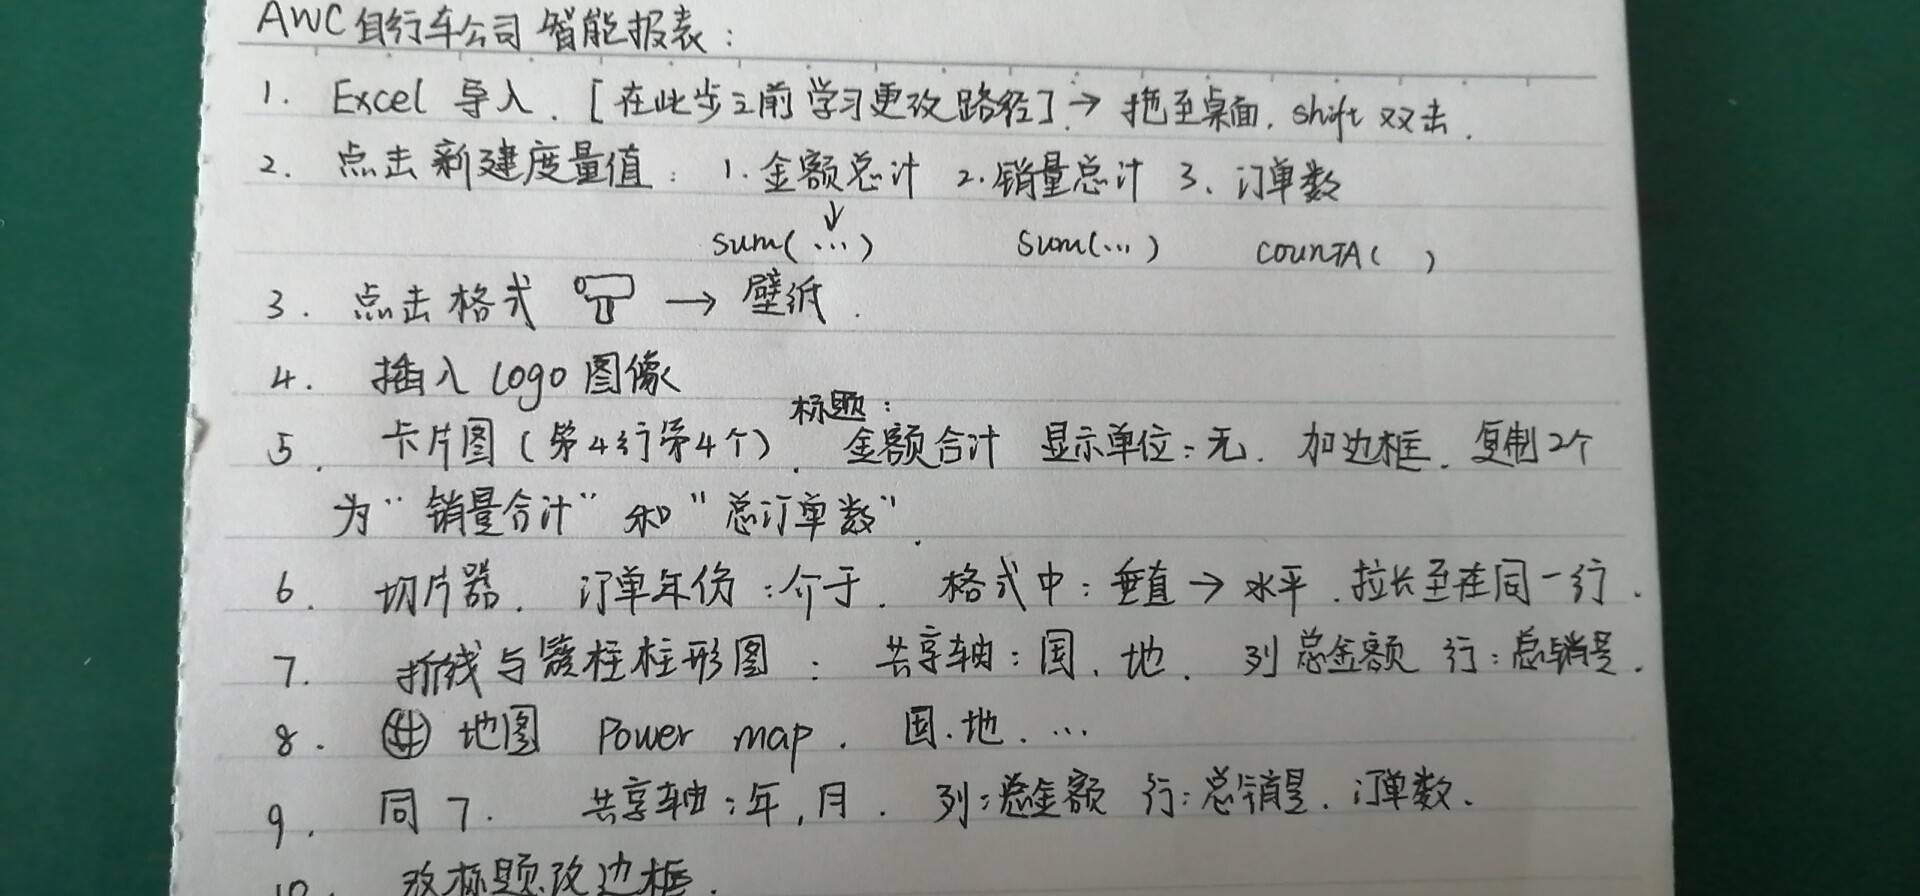 AWC自行车公司 智能报表：
1. Excel 导入. [在此步之前学习更改路径].→ 拖至桌面. shift 双击.
2. 点击新建度量值： 1.金额总计 2.销量总计 3、订单数
↓
sum(…) sum(…) COUNTA( )
3. 点击格式 → 壁纸.
4. 插入logo图像
标题：
5. 卡片图(第4行第4个). 金额合计 显示单位：无. 加边框. 复制2个
为“销量合计”和“总订单数”.
6. 切片器. 订单年份：介于. 格式中：垂直→水平.拉长至在同一行.
7. 折线与簇柱柱形图： 共享轴：国.地. 列总金额 行：总销量.
8. 地图 Power map. 国.地.…
9. 同7. 共享轴：年,月. 列：总金额 行：总销量.订单数.
10. 改标题改边框.